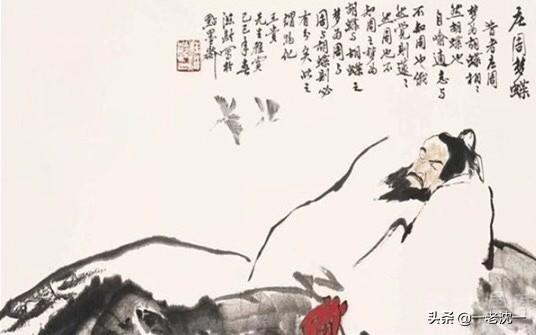 庄周梦蝶
昔者庄周
梦为胡蝶栩々
然胡蝶也
自喻適志与
不知周也俄
然觉则蘧々
然周也不
知周之梦为
胡蝶与胡蝶之
梦为周与
周与胡蝶则必
有分矣此之
谓物化
先生雅赏
己巳年春
写于
墨斋
头条 @一老沈一